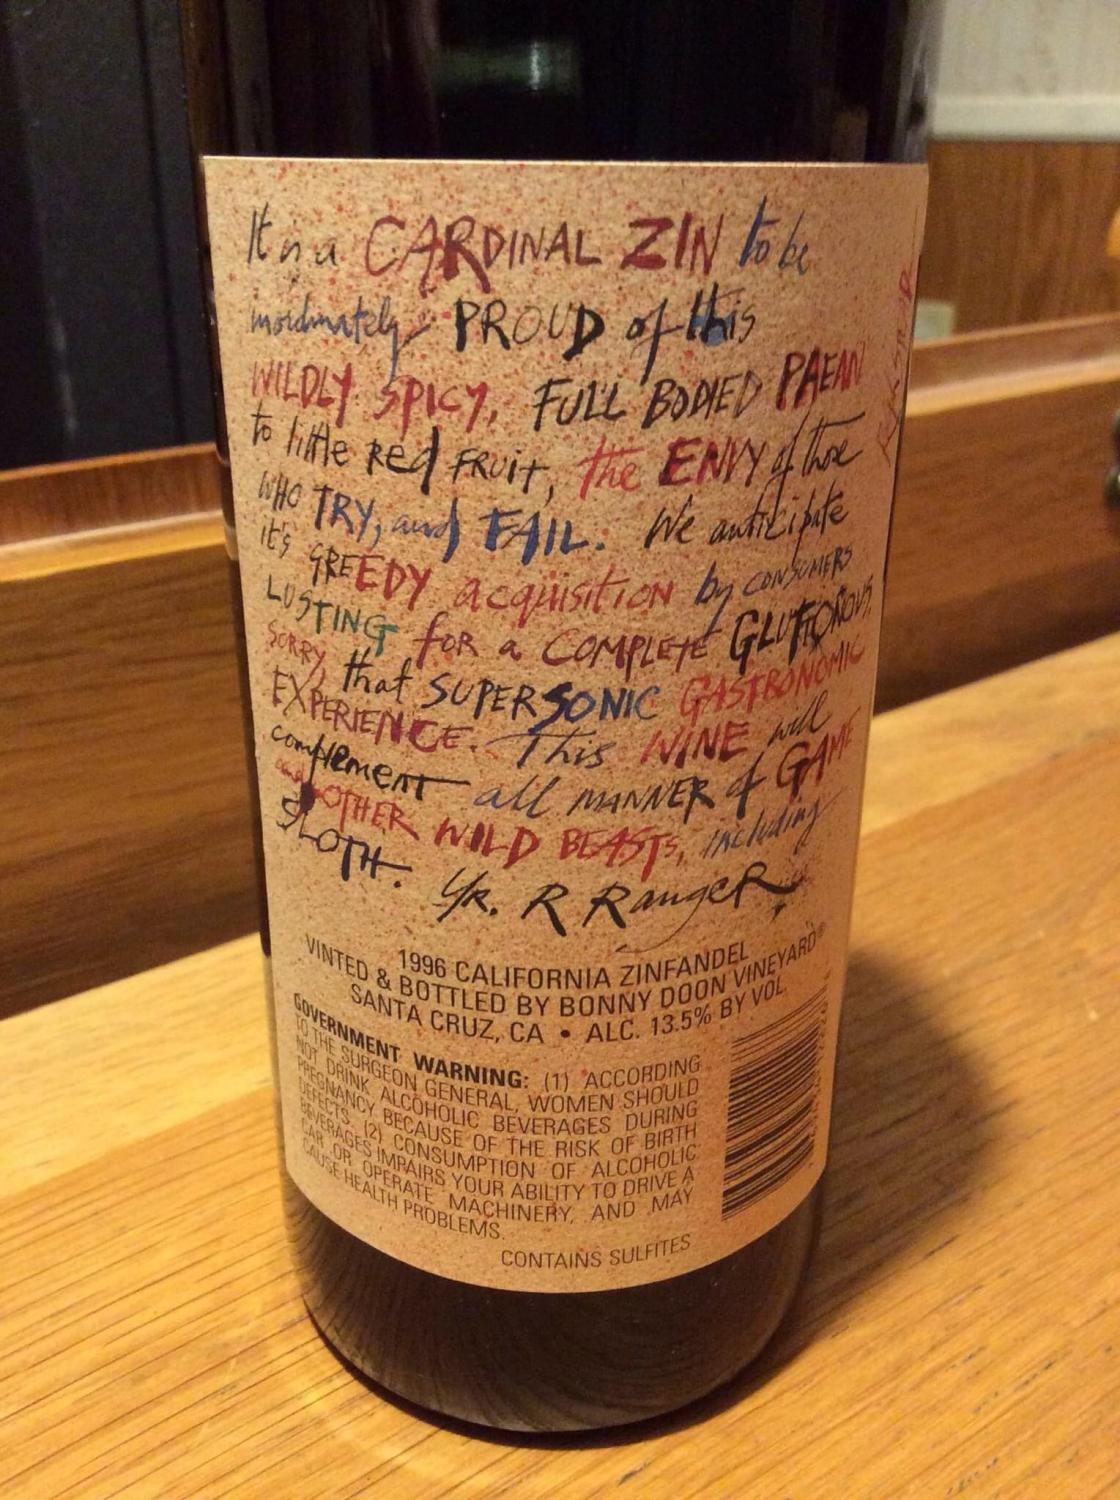 It is a CARDINAL ZIN to be
inordinately PROUD of this
WILDLY SPICY, FULL BODIED PAEAN
to little red FRUIT, the ENVY of those
WHO TRY, and FAIL. We anticipate
it's GREEDY acquisition by CONSUMERS
LUSTING for a COMPLETE GLUTTONOUS,
SORRY, that SUPERSONIC GASTRONOMIC
EXPERIENCE. This WINE will
complement all MANNER of GAME
and OTHER WILD BEASTS, including
SLOTH. Yr. R RangeR
1996 CALIFORNIA ZINFANDEL
VINTED & BOTTLED BY BONNY DOON VINEYARD®
SANTA CRUZ, CA • ALC. 13.5% BY VOL
GOVERNMENT WARNING: (1) ACCORDING
TO THE SURGEON GENERAL, WOMEN SHOULD
NOT DRINK ALCOHOLIC BEVERAGES DURING
PREGNANCY BECAUSE OF THE RISK OF BIRTH
DEFECTS. (2) CONSUMPTION OF ALCOHOLIC
BEVERAGES IMPAIRS YOUR ABILITY TO DRIVE A
CAR OR OPERATE MACHINERY, AND MAY
CAUSE HEALTH PROBLEMS.
CONTAINS SULFITES